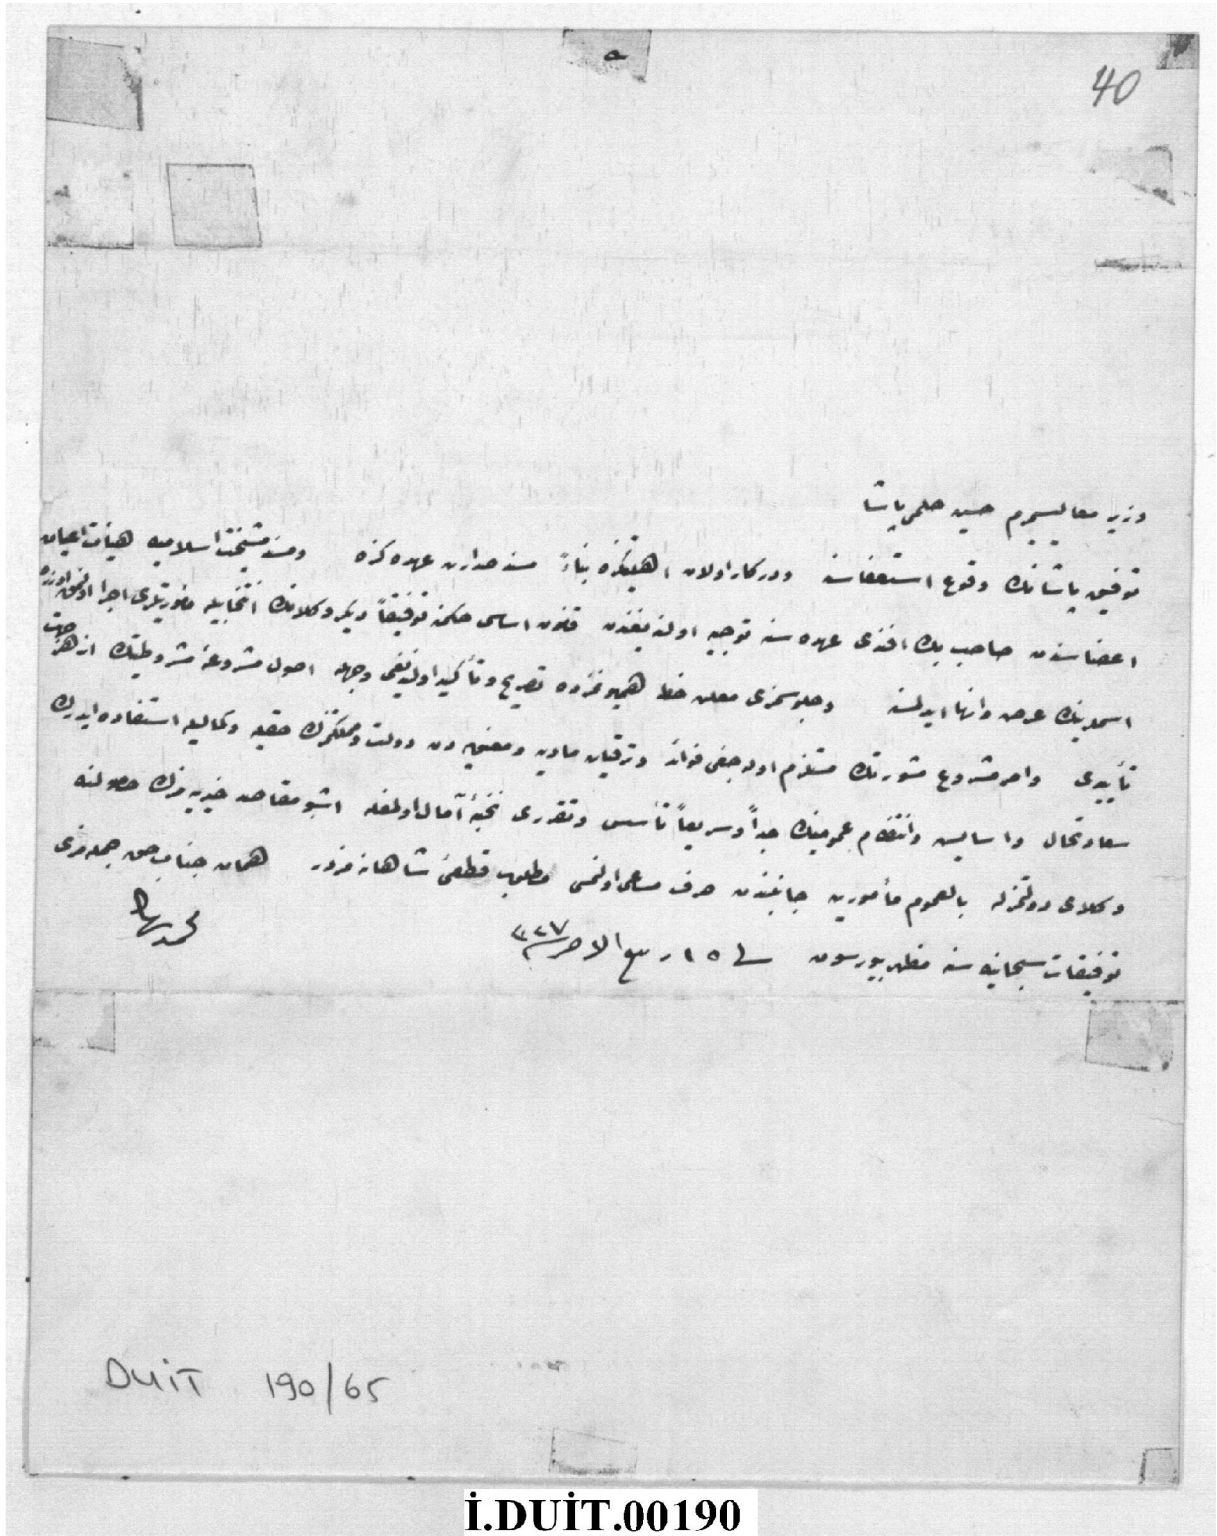 40
وزیر معالیسمیرم حسین حلمی پاشا
توفیق پاشانك وقوع استعفاسنه ودركار اولان اهلیتكزه بناءً مسند صدارت عهده كزه ومسند مشیخت اسلامیه هیئت اعیان
اعضاسندن صاحب بك افندی عهده سنه توجیه اولندیغندن قانون اساسی حكمنه توفیقاً دیكر وكلانك انتخابیله مأموریتلری اجرا اولنمق اوزره
اسملرینك عرض وانها ایدلسنه وجلوسمزی معلن خط همایونمزده تصریح وتأكید اولندیغی وجهله اصول مشروعهٔ مشروطیتك از هر جهت
تأییدی وامر مشروع مشورتك مستلزم اوله جغی فوائد وترقیات مادیه ومعنویه دن دولت ومملكتمزك حقیله وكمالیله استفاده ایدرك
سعادتحال واسایش وانتظام عمومینك جداً وسریعاً تأسیس وتقرری نخبهٔ آمال اولمغله اشبو مقاصد خیریه مزك حصولنه
وكلای دولتمزله بالعموم مأمورین جانبندن صرف مساعی اولنمسی مطلوب قطعی شاهانه مزدر همان جناب حق جمله مزی
توفیقات سبحانیه سنه مظهر بیورسون فی ١٥ ربیع الاخر سنه ٣٢٧
محمد رشاد
DUİT 190/65
İ.DUİT.00190